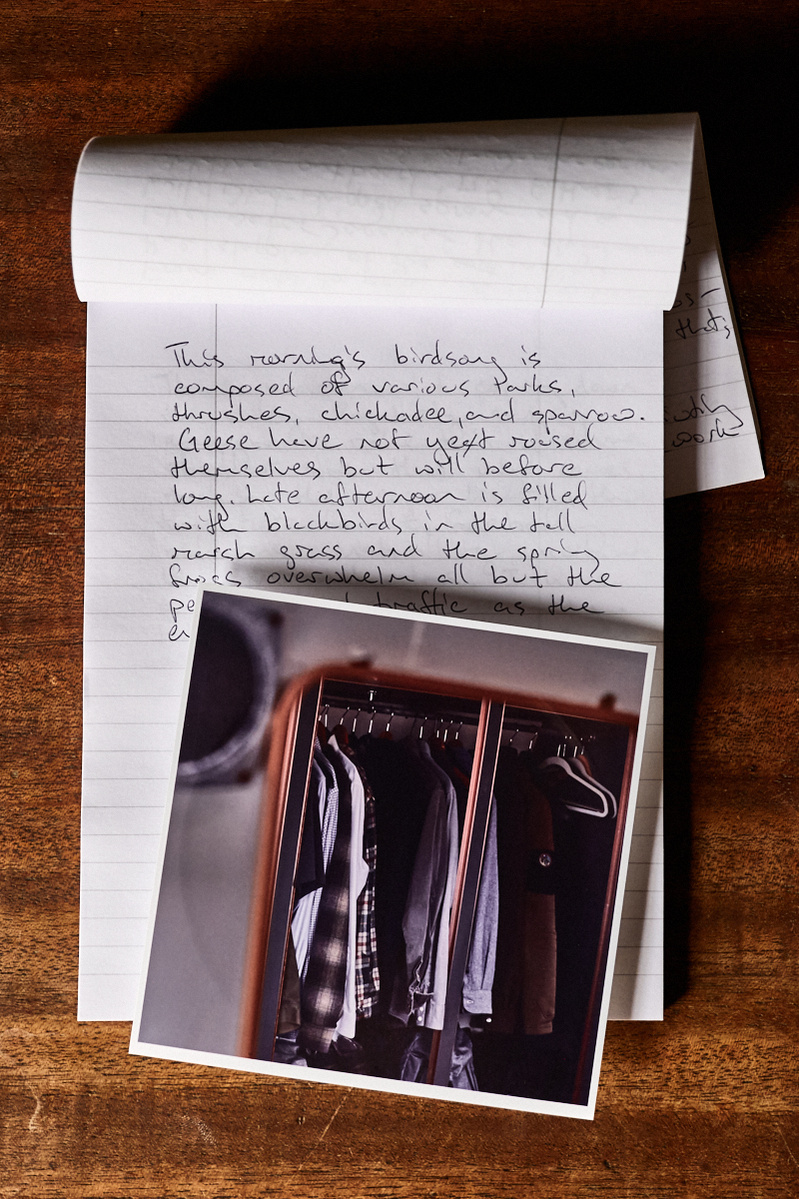 This morning's birdsong is
composed of various Parks,
thrushes, chickadee, and sparrow.
Geese have not yet roused
themselves but will before
long. Late afternoon is filled
with blackbirds in the tall
marsh grass and the spring
frogs overwhelm all but the
traffic as the
that's
work